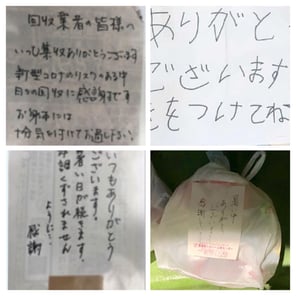 回収業者の皆様へ
いつも集収ありがとうございます
新型コロナのリスクのある中
日々の回収に感謝です
お身体には
十分気を付けてお過し下さい。
ありがと
ございます
をつけてね
いつもありがとう
ございます。
暑い日が続きます。
体調くずされません
ように…
感謝